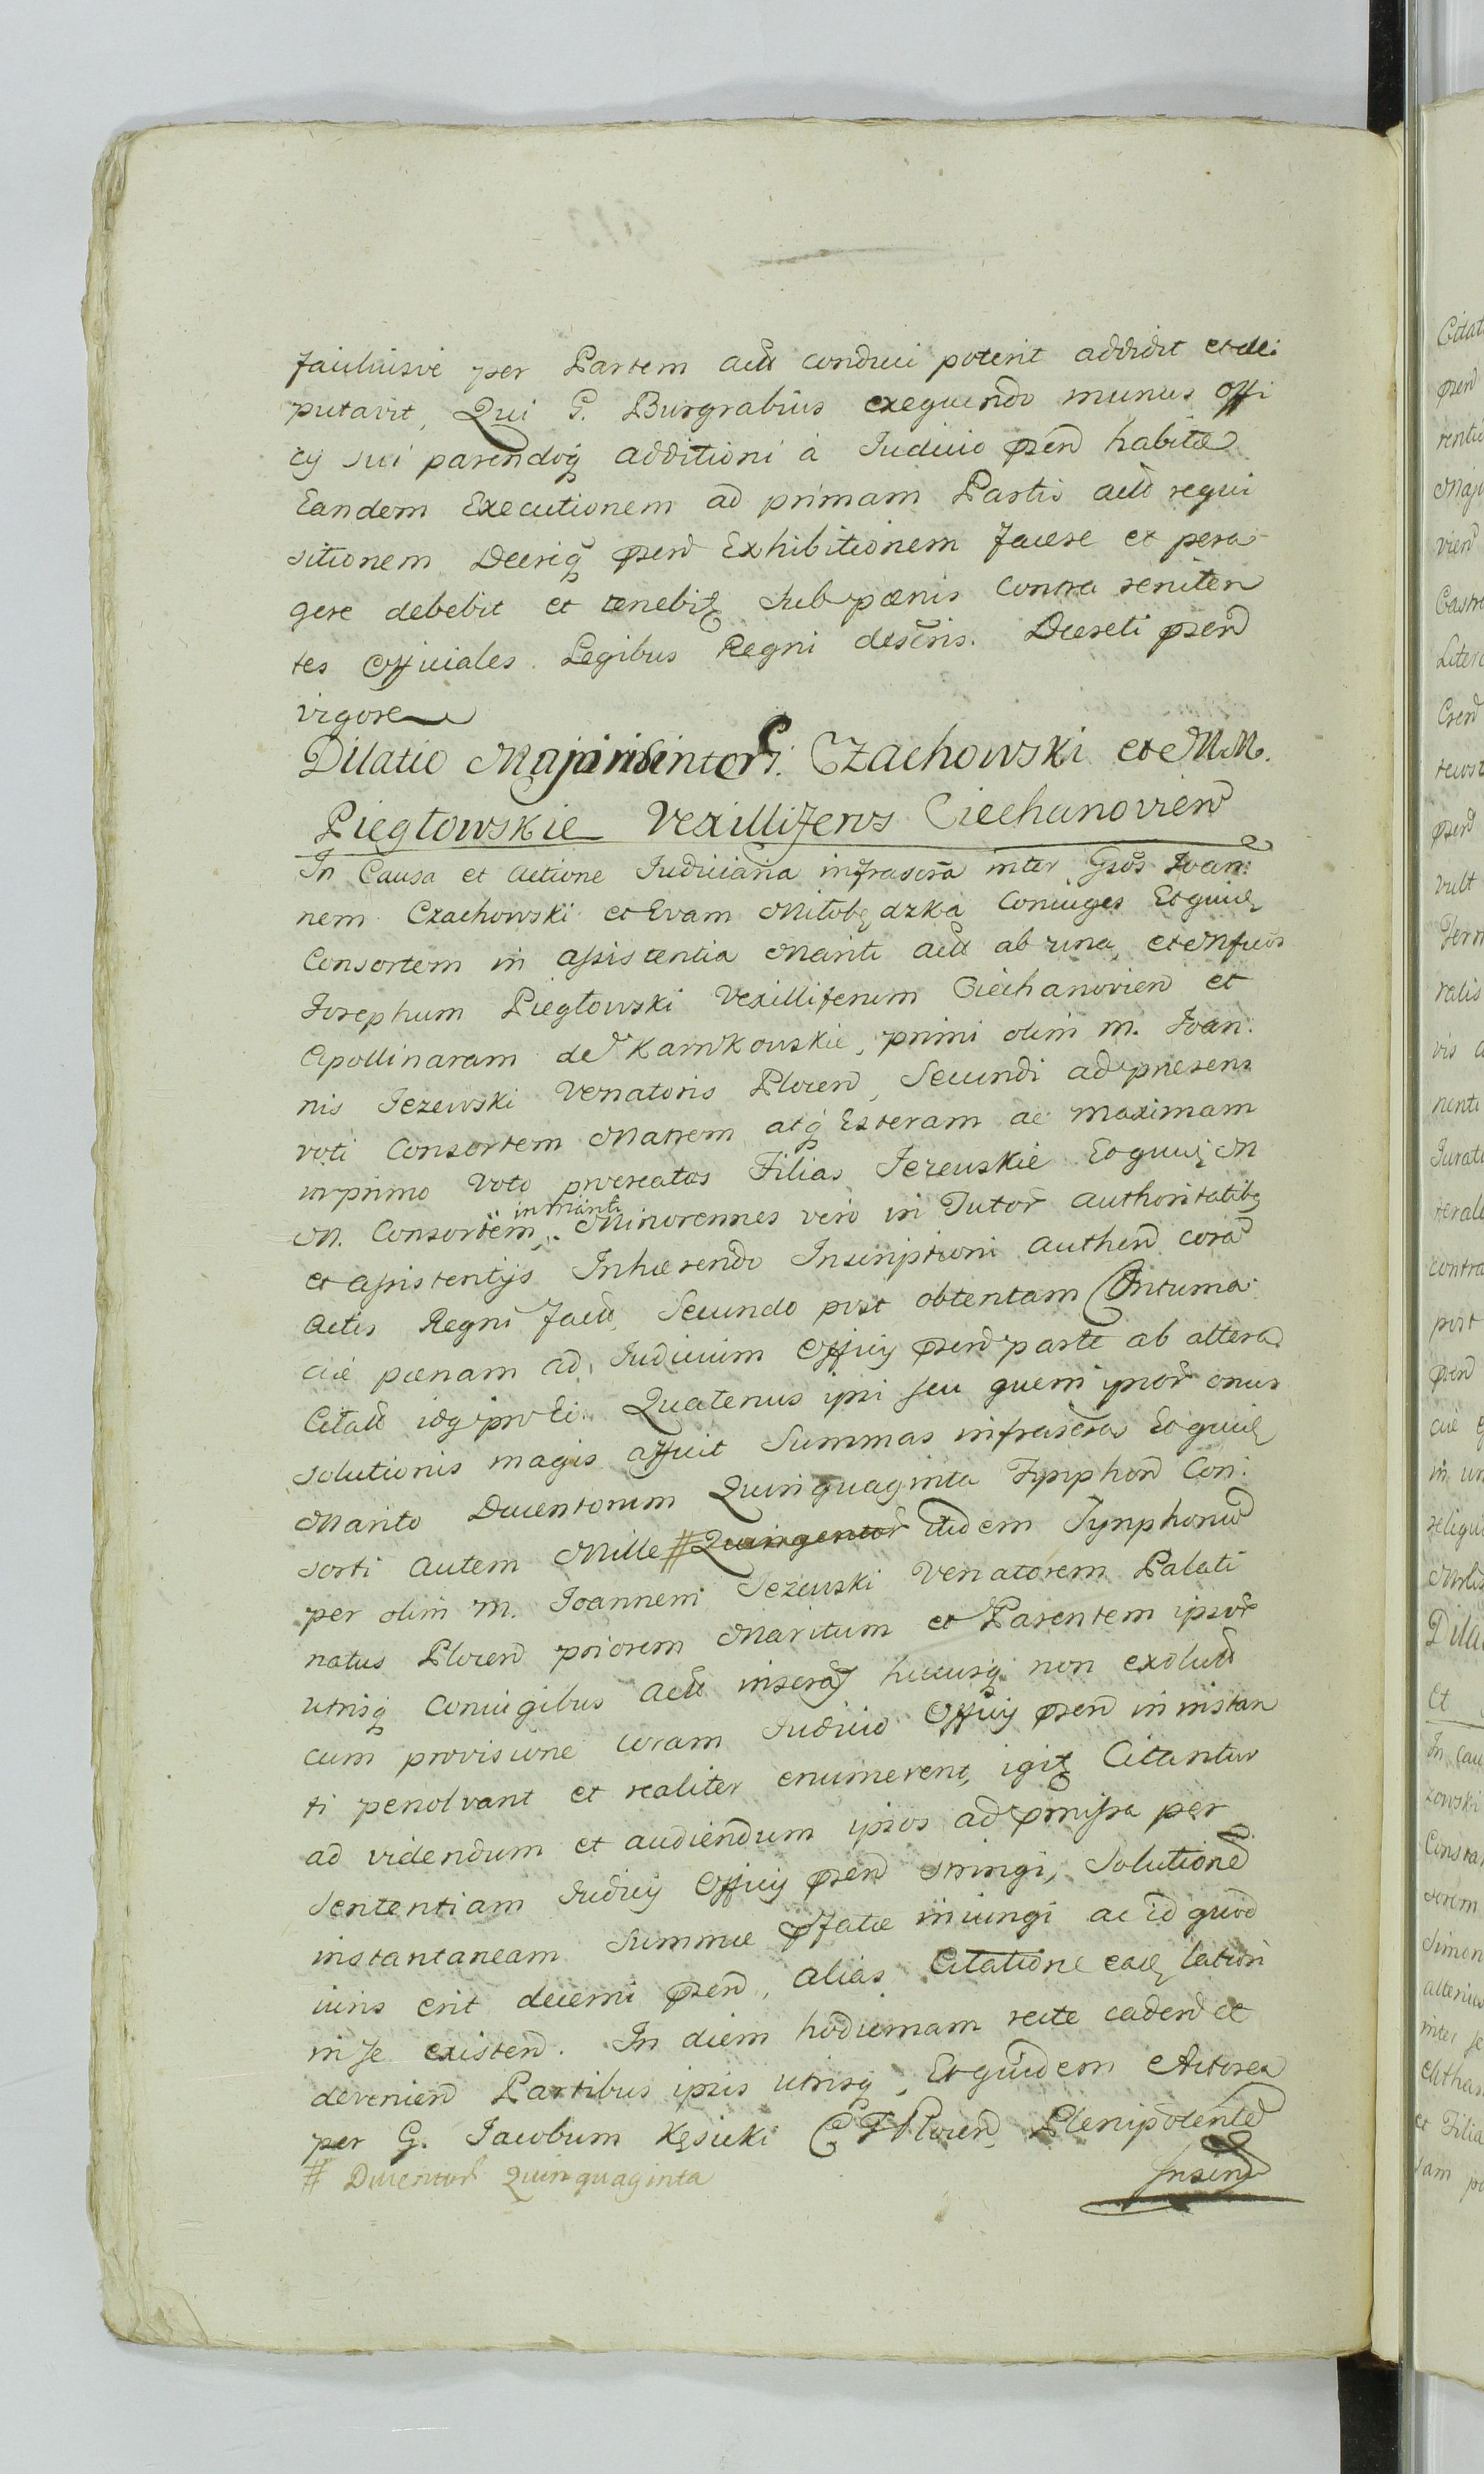 faciliusve per Partem act̃t conduci poterit addidit et de:
putavit, Qui G. Burgrabius exequendo munus offi
cij sui parendoq̃ additioni à Iudicio p̃sen̄ habitæ
Eandem Executionem ad primam Partis act̃t requi
sitionem Decriq̃ p̃sen̄ Exhibitionem facere et pera
gere debebit et tenebiť Sub pænis contra reniten
tes Officiales Legibus Regni descris. Decreti p̃sen̄
vigore
Dilatio Majoris inter G. Czachowski et M.M.
Piegłowskie Vexilliferos Ciechanovien̄
In Causa et Actione Iudiciaria infrascrã inter Gsos Ioan:
nem Czachowski et Evam Miłobędzka Coniuges Et quid̨
Consortem in assistentia Mariti act̃t ab una, et Mficos
Iosephum Piegłowski Vexilliferum Ciechanovien̄ et
Apollinaram de Karnkowskie, primi olim M. Ioan:
nis Jeżewski Venatoris Plocen̄, Secundi ad præsens
voti Consortem Matrem atq̃ Esteram ac Maximam
in primo Voto procreatas Filias Jeżewskie Et quid̨ M
M. Consortem, in Mariti Minorennes vero in Tutor̃ Authoritatibq̨
et assistentijs Inhærendo Inscriptioni Authen̄ corã
Actis Regni fact̃t, Secundo post obtentam Contuma:
ciæ pænam ad Iudicium Officij p̃sen̄ parte ab altera
Citat̃t idq̃ pro Eo. Quatenus ipsi seu quem ipsor̃ onus
solutionis magis afficit Summas infrascras Et quid̨
Marito Ducentorum Quinquaginta Tynphon̄ Con:
sorti autem Mille # Quingentor̃ itidem Tynphon̄
per olim M. Ioannem Jeżewski Venatorem Palati
natus Plocen̄ priorem Maritum et Parentem ipsor̃
utrisq̃ Coniugibus act̃t inscras hucusq̃ non exolut̃t
cum provisione coram Iudicio Officij p̃sen̄ in instan
ti persolvant et realiter enumerent, igiť Citantur
ad videndum et audiendum ipsos ad p̃missa per
Sententiam Iudicij Officij p̃sen̄ stringi, Solutionē
instantaneam Summæ p̃fatæ iniungi ac id quod
iuris erit decerni p̃sen̄, alias Citatione ead̨ latiori
in se existen̄. In diem hodiernam recte caden̄ et
devenien̄ Partibus ipsis utrisq̃, Et quidem Actorea
per G. Iacobum Kęsicki C T Plocen̄ Plenipotentē
# Ducentor̃ Quinquaginta